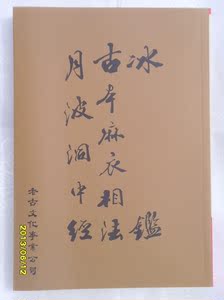 冰鑑
古本麻衣相法
月波洞中經
老古文化事業公司
2013/06/12